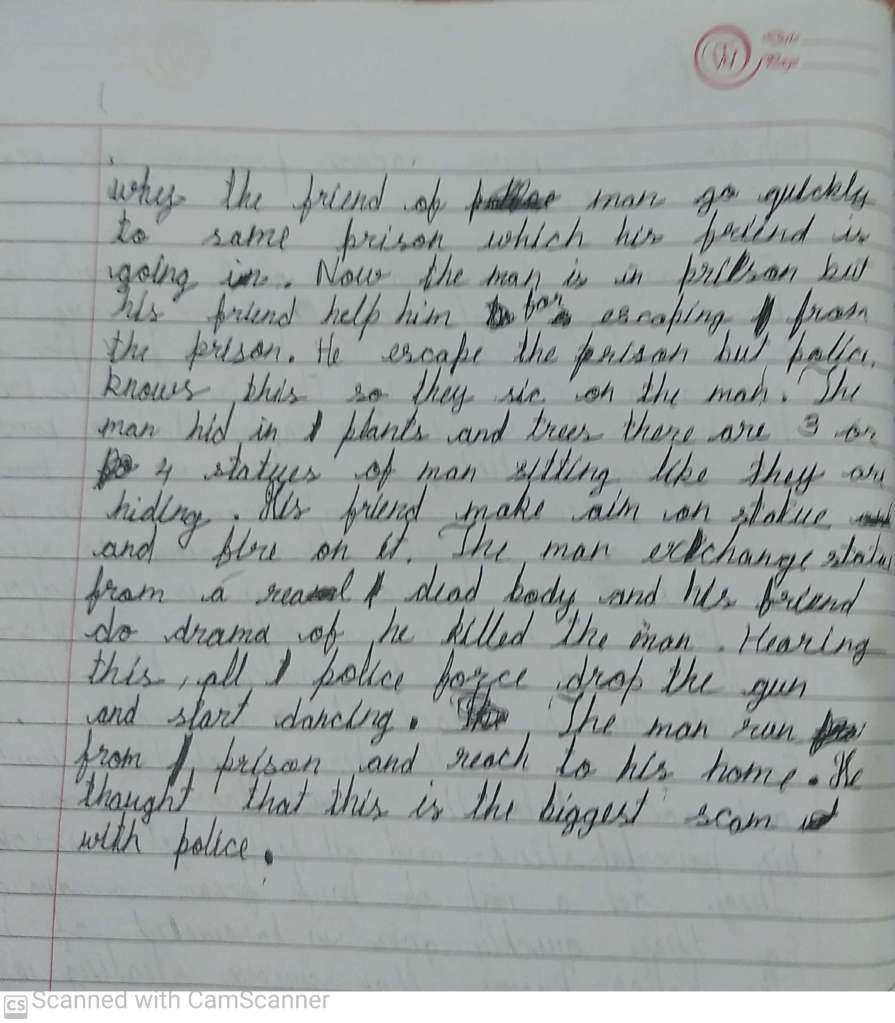 Date
Page
why the friend of man go quickly
to same prison which his freind is
going in. Now the man is in prison but
his friend help him for escaping from
the prison. He escape the prison but police
knows this so they sic on the man. The
man hid in plants and trees there are 3 or
4 statues of man sitting like they are
hiding. His friend make aim on statue
and fire on it. The man exchange statue
from a real dead body and his friend
do drama of he killed the man. Hearing
this, all police force drop the gun
and start dancing. The man run
from prison and reach to his home. He
thought that this is the biggest scam
with police.
CS Scanned with CamScanner